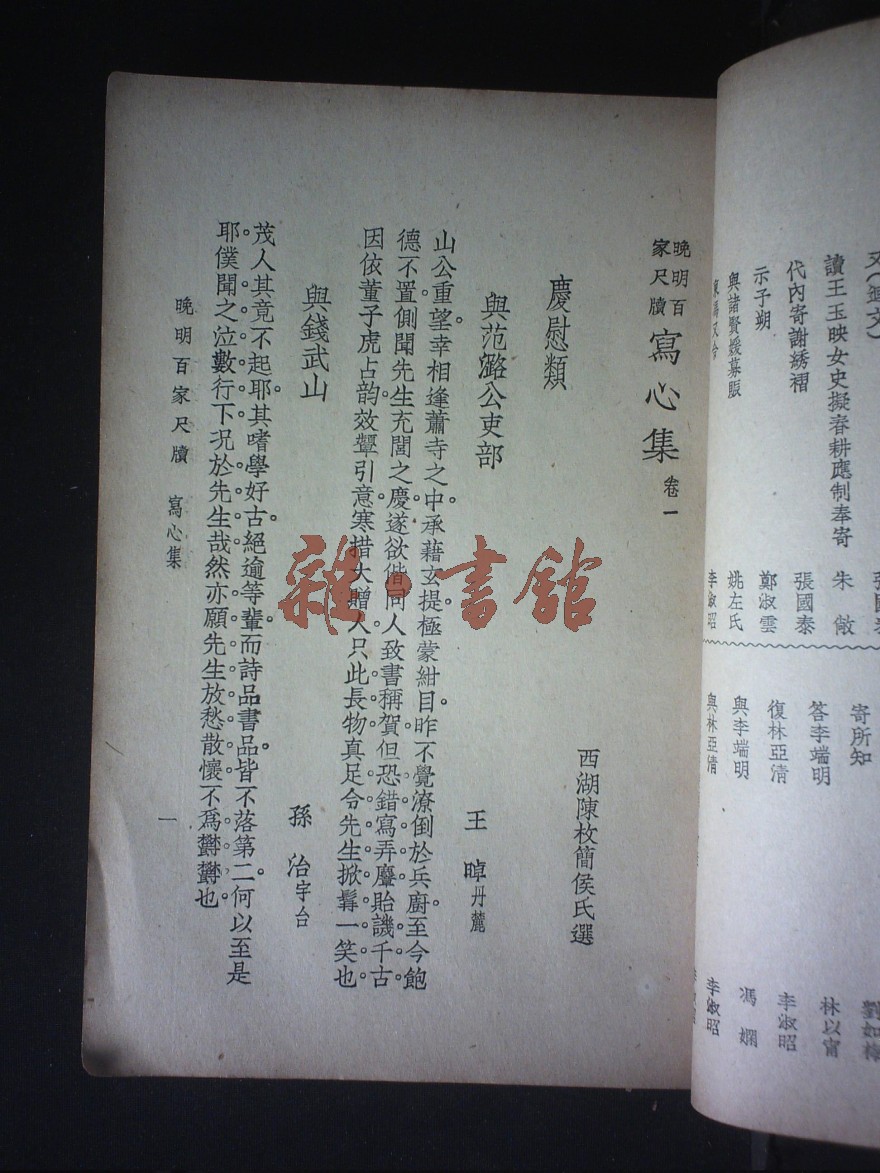 讀王玉映女史擬春耕應制奉寄　朱　敞
代內寄謝綉褶　張國泰
示子朔　鄭淑雲
與諸賢媛募賑　姚左氏
李淑昭
寄所知
答李端明　林以甯
復林亞清　李淑昭
與李端明　馮　嫻
與林亞清　李淑昭
晚明百家尺牘　寫心集　卷一
西湖陳枚簡侯氏選
慶慰類
與范潞公吏部　王　晫丹麓
山公重望。幸相逢蕭寺之中。承藉玄提。極蒙紺目。昨不覺潦倒於兵廚。至今飽
德不置。側聞先生充閭之慶。遂欲偕同人致書稱賀。但恐錯寫弄麞。貽譏千古。
因依董子虎占韵。效顰引意。寒措大贈人。只此長物。真足令先生掀髯一笑也。
與錢武山　孫　治宇台
茂人其竟不起耶。其嗜學好古。絕逾等輩。而詩品書品。皆不落第二。何以至是
耶。僕聞之泣數行下。况於先生哉。然亦願先生放愁散懷。不爲欝欝也。
晚明百家尺牘　寫心集
一
雜·書館